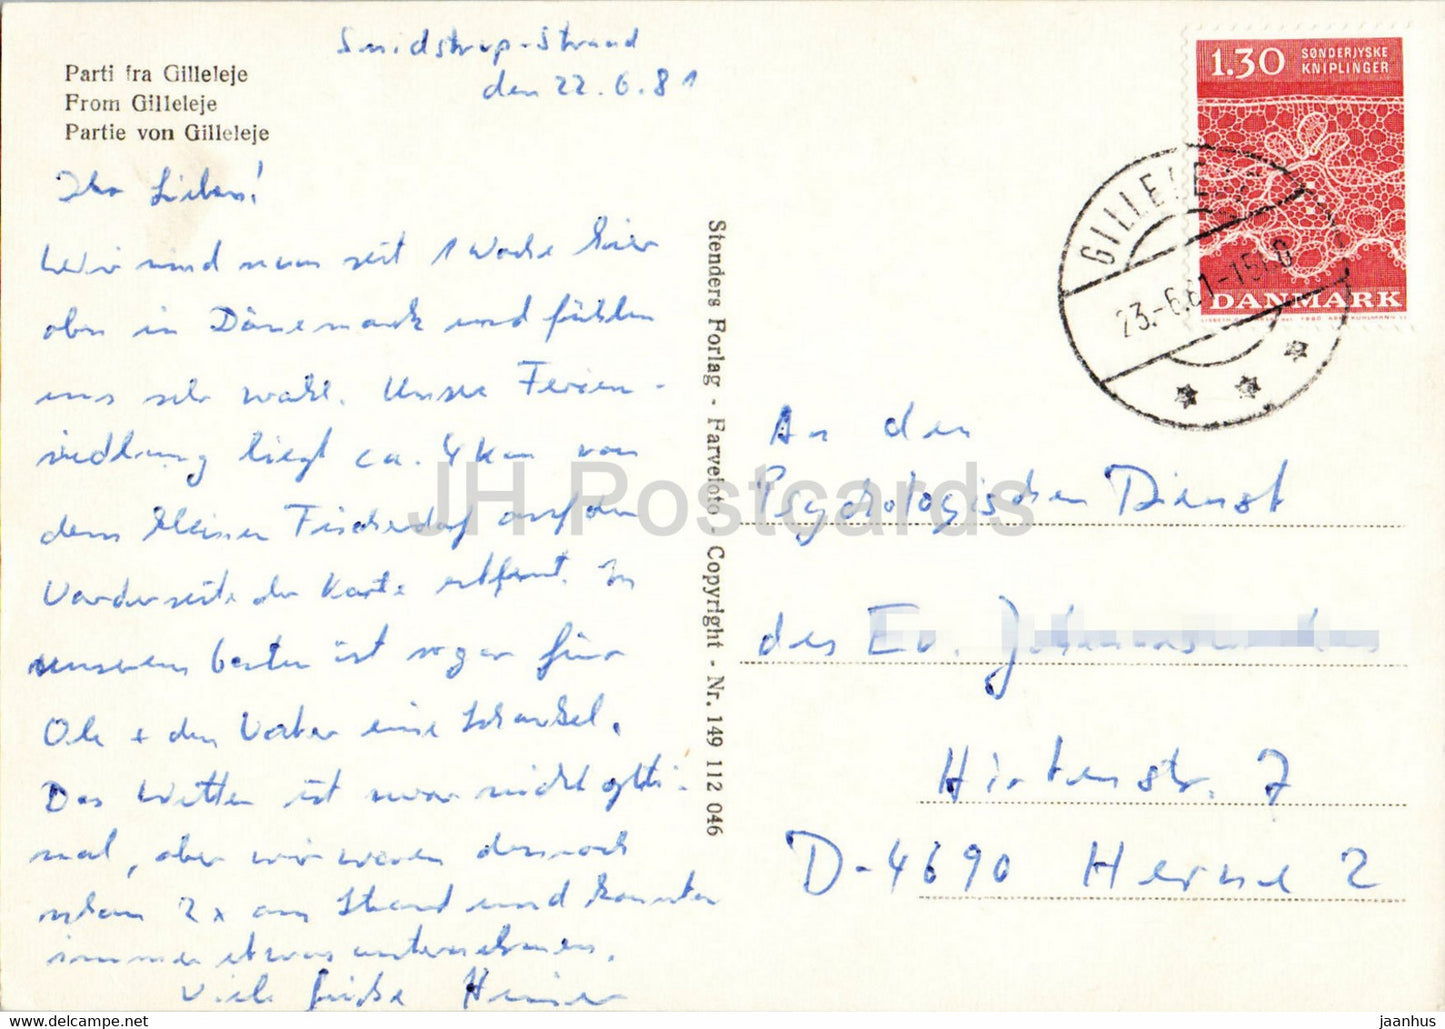 Smidstrup-Strand
den 22.6.81
Parti fra Gilleleje
From Gilleleje
Partie von Gilleleje
Ihr Lieben!
Wir sind nun seit 1 Woche hier
oben in Dänemark und fühlen
uns sehr wohl. Unsere Ferien-
siedlung liegt ca. 4 km von
dem kleinen Fischerdorf auf der
Vorderseite der Karte entfernt. In
unserem Garten ist sogar für
Ole + den Vater eine Schaukel.
Das Wetter ist zwar nicht opti-
mal, aber wir waren dennoch
schon 2x am Strand und konnten
immer etwas unternehmen.
Viele Grüße Heiner
Stenders Forlag - Farvefoto - Copyright - Nr. 149 112 046
1.30 SØNDERJYSKE
KNIPLINGER
DANMARK
GILLELEJE
23.-6.81-15
An den
Psychologischen Dienst
des Ev.
Hirtenstr. 7
D-4690 Herne 2
JH Postcards
jaanhus